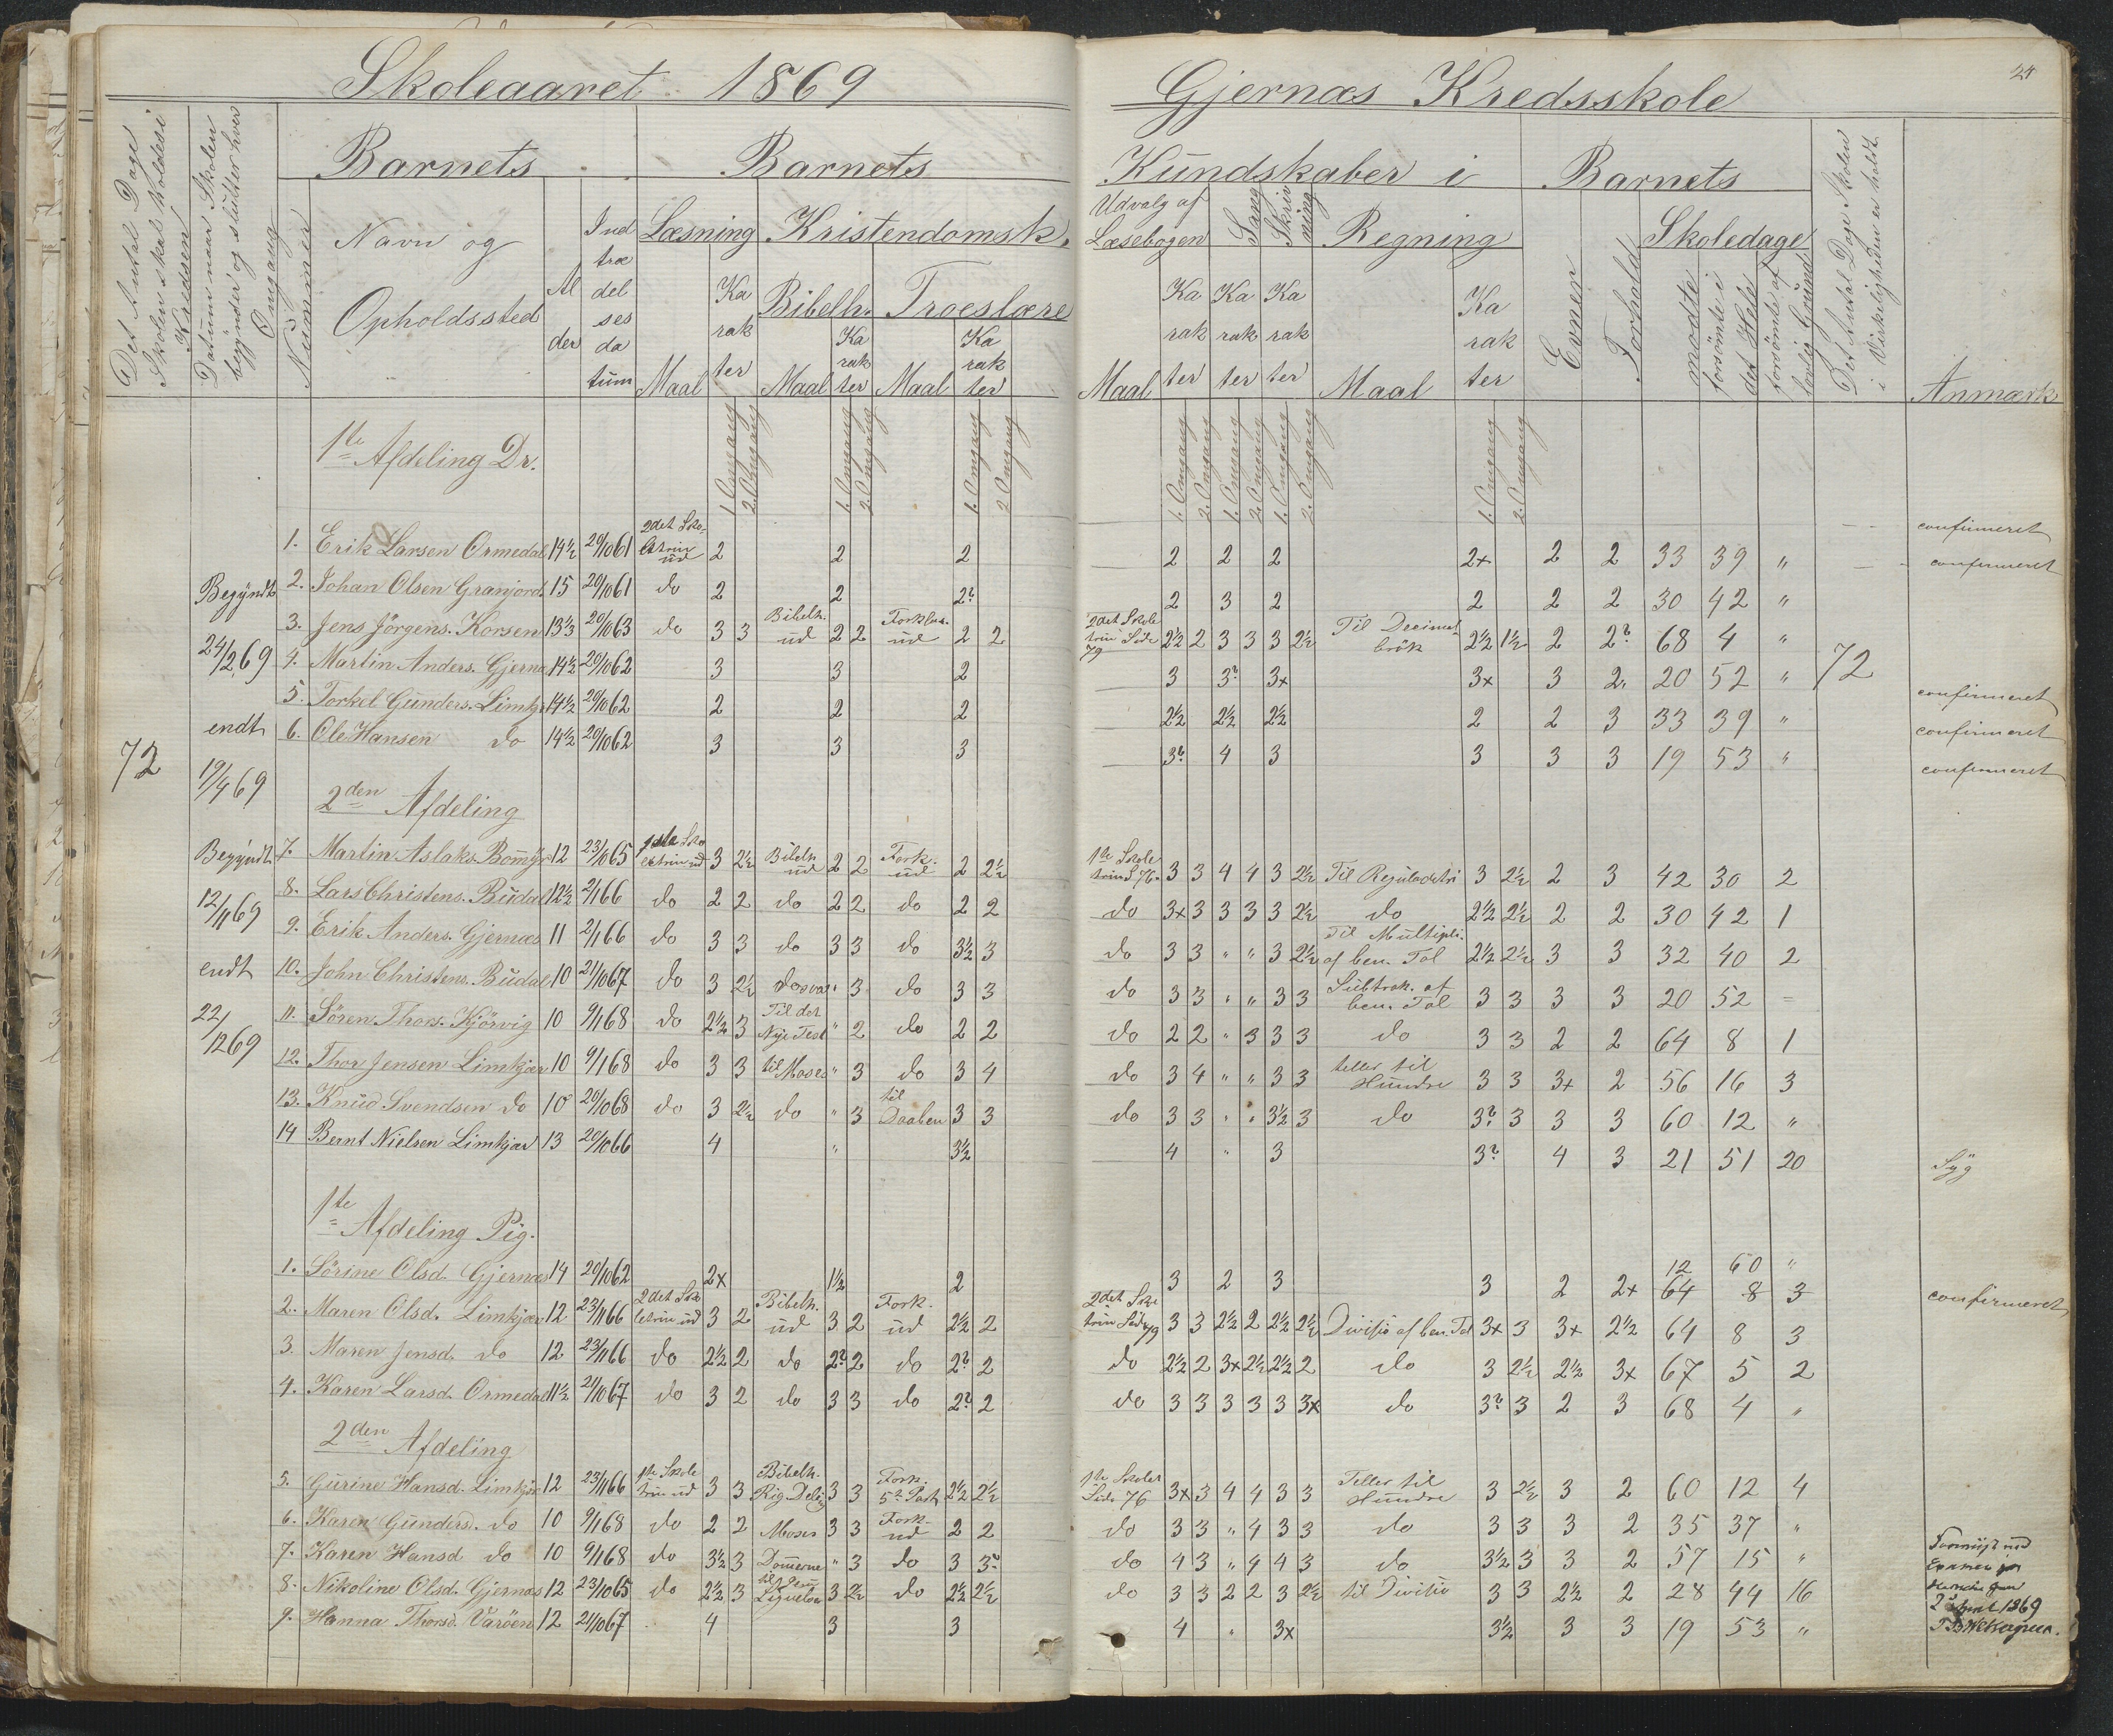 Skoleaaret 1869
Gjernæs Kredsskole
24
Det Antal Dage Skolen skal holdes i Kredsen
Datum naar Skolen begynder og slutter hver Omgang
Nummer
Barnets
Navn og Opholdssted
Alder
Indtrædelsesdatum
Barnets
Kundskaber i
Læsning
Maal
Karakter
Kristendomsk.
Bibelh.
Maal
Karakter
Troeslære
Maal
Karakter
Udvalg af Læsebogen
Maal
Karakter
Sang
Karakter
Skrivning
Karakter
Regning
Maal
Karakter
Barnets
Evner
Forhold
Skoledage
mødte
forsömte i det Hele
forsömte af lovlig Grund
Det Antal Dage Skolen i Virkeligheden er holdt
Anmærk.
1. Omgang 2. Omgang 1. Omgang 2. Omgang 1. Omgang 2. Omgang
1. Omgang 2. Omgang 1. Omgang 2. Omgang 1. Omgang 2. Omgang 1. Omgang 2. Omgang
72
Begyndt 24/2 69 endt 19/4 69
Begyndt 12/11 69 endt 22/12 69
1te Afdeling Dr.
1. Erik Larsen Ormedal 14½ 20/10 61 2det Skoletrin ud 2 2 2 2 2 2 2+ 2 2 33 39 " confirmeret
2. Johan Olsen Granjord 15 20/10 61 do 2 2 2? 2 3 2 2 2 2 30 42 " confirmeret
3. Jens Jörgens. Korsen 13⅓ 20/10 63 do 3 3 Bibelh. ud 2 2 Forklar. ud 2 2 2det Skoletrin Side 79 2½ 2 3 3 3 2½ Til Decimalbrök 2½ 1½ 2 2? 68 4 " 72
4. Martin Anders. Gjerna 14½ 20/10 62 3 3 2 3 3? 3+ 3+ 3 2. 20 52 " confirmeret
5. Torkel Gunders. Limkj 14½ 20/10 62 2 2 2 2½ 2½ 2½ 2 2 3 33 39 " confirmeret
6. Ole Hansen do 14½ 20/10 62 3 3 3 3? 4 3 3 3 3 19 53 " confirmeret
2den Afdeling
7. Martin Aslaks. Bomyr 12 23/10 65 1ste Skoletrin ud 3 2½ Bibelh ud 2 2 Fork. ud 2 2½ 1te Skoletrin S 76. 3 3 4 4 3 2½ Til Reguladetri 3 2½ 2 3 42 30 2
8. Lars Christens. Budal 12½ 2/1 66 do 2 2 do 2 2 do 2 2 do 3+ 3 3 3 3 2½ do 2½ 2½ 2 2 30 42 1
9. Erik Anders. Gjernæs 11 2/1 66 do 3 3 do 3 3 do 3½ 3 do 3 3 " " 3 2½ Til Multipli. af ben. Tal 2½ 2½ 3 3 32 40 2
10. John Christens. Budal 10 21/10 67 do 3 2½ do " 3 do 3 3 do 3 3 " " 3 3 Subtrak. af ben. Tal 3 3 3 3 20 52 =
11. Sören Thors. Kjörvig 10 9/1 68 do 2½ 3 Til det Nye Test " 2 do 2 2 do 2 2 " 3 3 3 do 3 3 2 2 64 8 1
12. Thor Jensen Limkjær 10 9/1 68 do 3 3 til Moses " 3 do 3 4 do 3 4 " " 3 3 teller til Hundre 3 3 3+ 2 56 16 3
13. Knud Svendsen do 10 20/10 68 do 3 2½ do " 3 til Daaben 3 3 do 3 3 " " 3½ 3 do 3? 3 3 3 60 12 "
14 Bernt Nielsen Limkjær 13 20/10 66 4 " 3½ 4 " 3 3? 4 3 21 51 20 Syg
1te Afdeling Pig.
1. Sörine Olsd. Gjernæs 14 20/10 62 2+ 1½ 2 3 2 3 3 2 2+ 12 60 " confirmeret
64 8 3
2. Maren Olsd. Limkjær 12 23/11 66 2det Skoletrin ud 3 2 Bibelh. ud 3 2 Fork. ud 2½ 2 2det Skoletrin Side 79 3 3 2½ 2 2½ 2½ Divisio af ben. Tal 3+ 3 3+ 2½ 64 8 3
3. Maren Jensd. do 12 23/11 66 do 2½ 2 do 2? 2 do 2? 2 do 2½ 2 3+ 2½ 2½ 2 do 3 2½ 2½ 3+ 67 5 2
4. Karen Larsd. Ormedal 11½ 21/10 67 do 3 2 do 3 3 do 2? 2 do 3 3 3 3 3 3+ do 3? 3 2 3 68 4 "
2den Afdeling
5. Gurine Hansd. Limkjær 12 23/11 66 1te Skoletrin ud 3 3 Bibelh. Rig. Deling 3 3 Fork. 5te Part 2½ 2½ 1te Skolet Side 76 3+ 3 4 4 3 3 Teller til Hundre 3 2½ 3 2 60 12 4
6. Karen Gunders. do 10 9/1 68 do 2 2 Moses 3 3 Fork. ud 2 2 do 3 3 " 4 3 3 do 3 3 3 2 35 37 "
7. Karen Hansd do 10 9/1 68 do 3½ 3 Domerne " 3 do 3 3? do 4 3 " 4 4 3 do 3½ 3 3 2 57 15 "
8. Nikoline Olsd. Gjernæs 12 23/10 65 do 2½ 3 3 2½ do 2½ 2½ do 3 3 2 2 3 2½ til Divisio 3 3 2½ 2 28 44 16
9. Hanna Thorsd. Varöen 12 21/10 67 4 3 3 4 " 3+ 3½ 3 3 19 53 "
1869